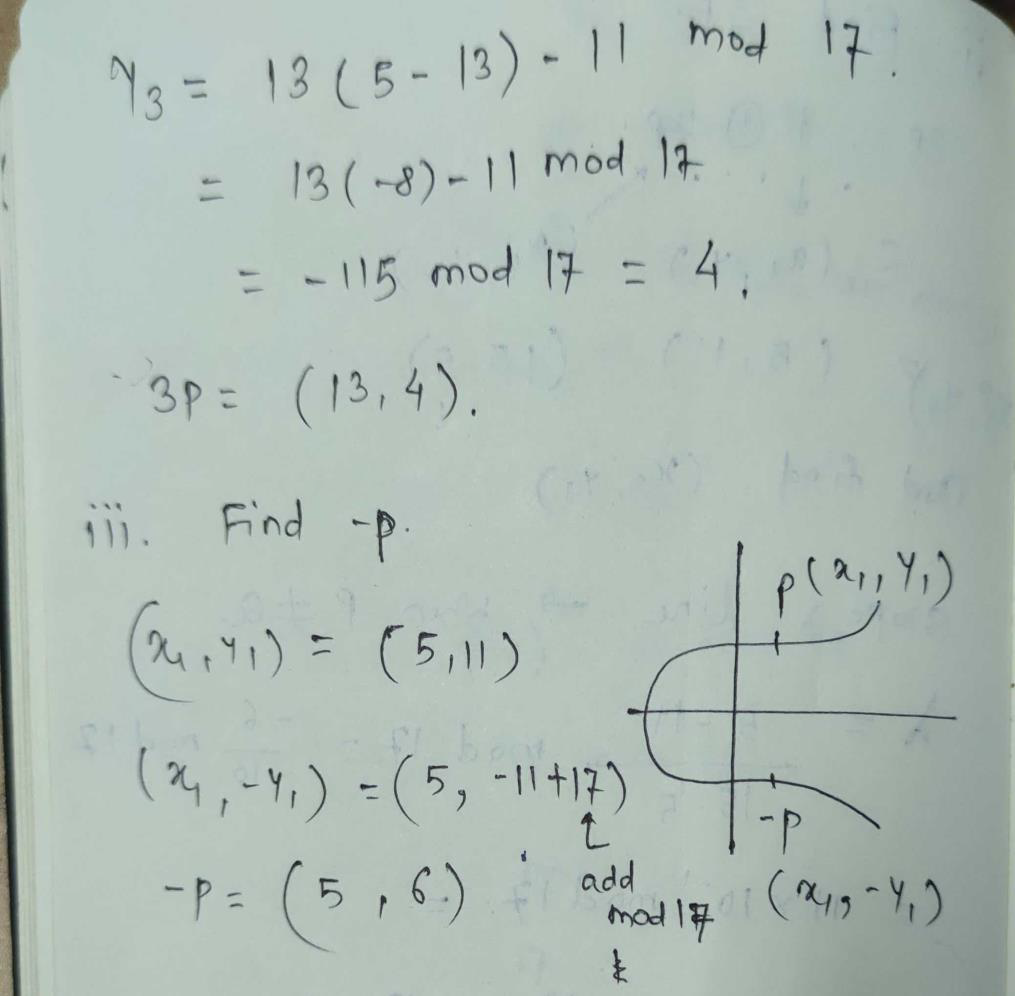 Y₃ = 13 (5 - 13) - 11 mod 17.
= 13 (-8) - 11 mod 17.
= -115 mod 17 = 4.
3P = (13, 4).
iii. Find -P.
P(x₁, Y₁)
(x₁, Y₁) = (5, 11)
(x₁, -Y₁) = (5, -11+17)
-P
-P = (5, 6)
add
mod 17
(x₁, -Y₁)